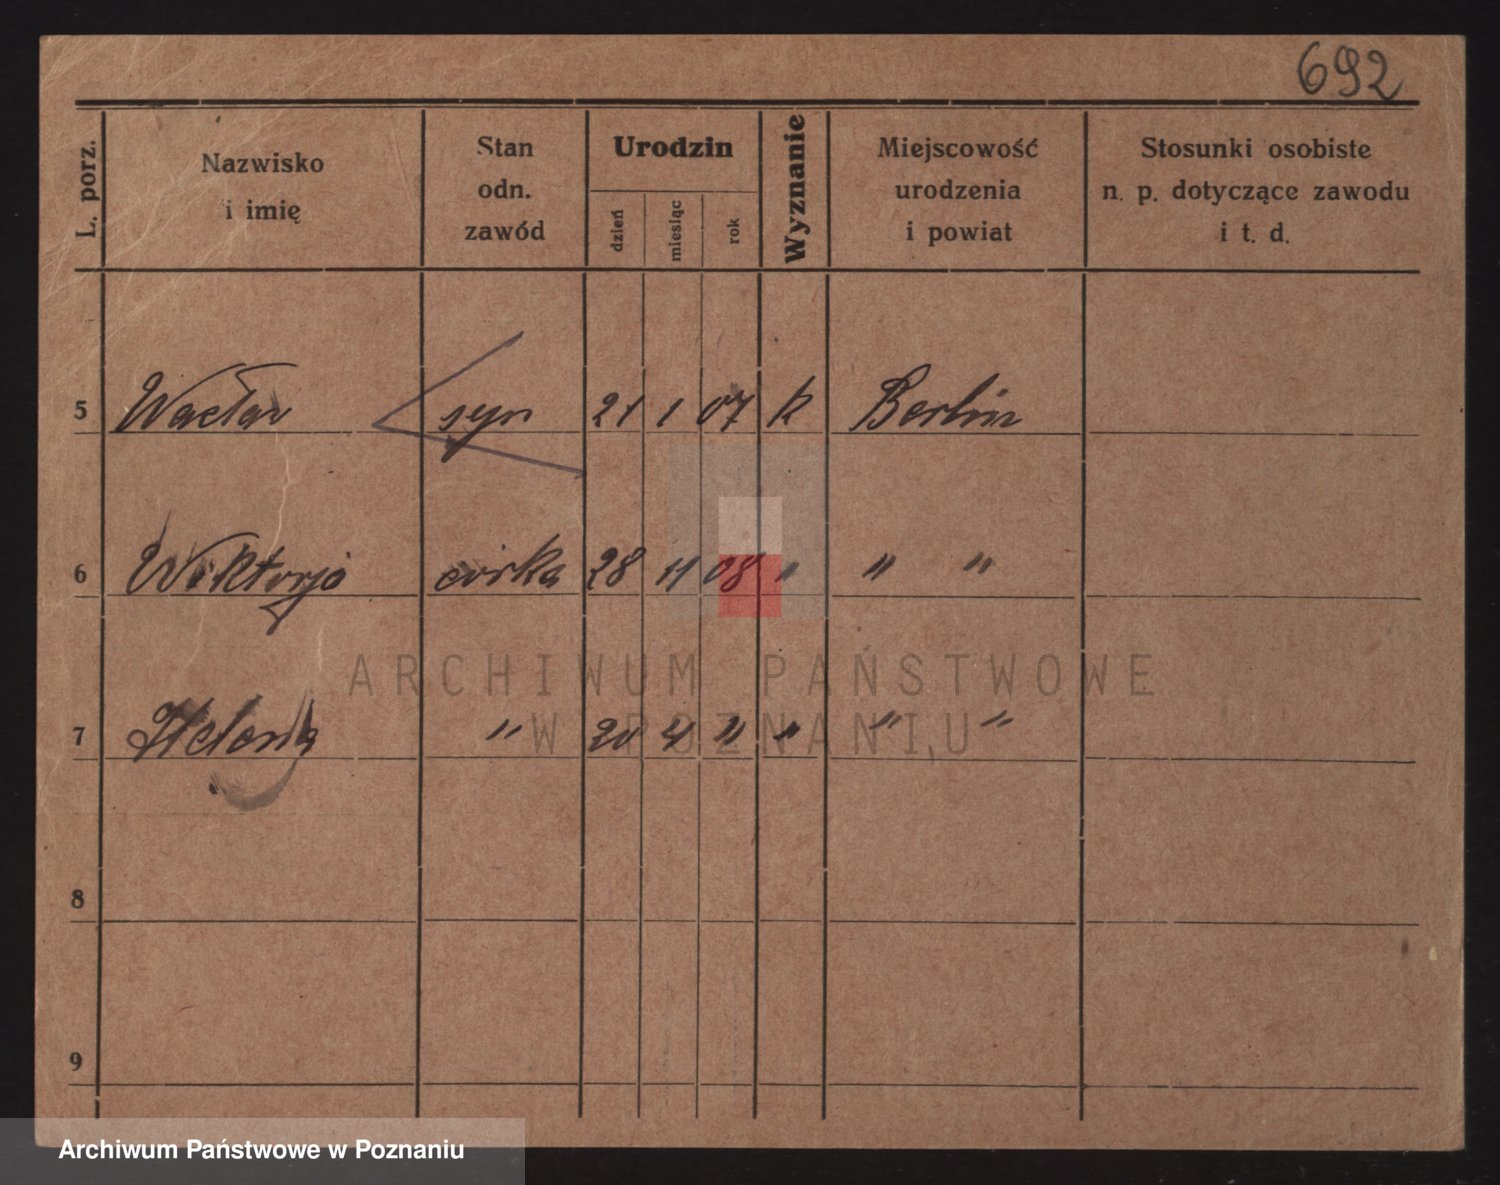 692
L. porz.
Nazwisko
i imię
Stan
odn.
zawód
Urodzin
dzień
miesiąc
rok
Wyznanie
Miejscowość
urodzenia
i powiat
Stosunki osobiste
n. p. dotyczące zawodu
i t. d.
5 Wacław syn 21 1 07 k Berlin
6 Wiktorja córka 28 08 " " "
7 Helena " 20 4 " " " "
8
9
ARCHIWUM PAŃSTWOWE
W POZNANIU
Archiwum Państwowe w Poznaniu